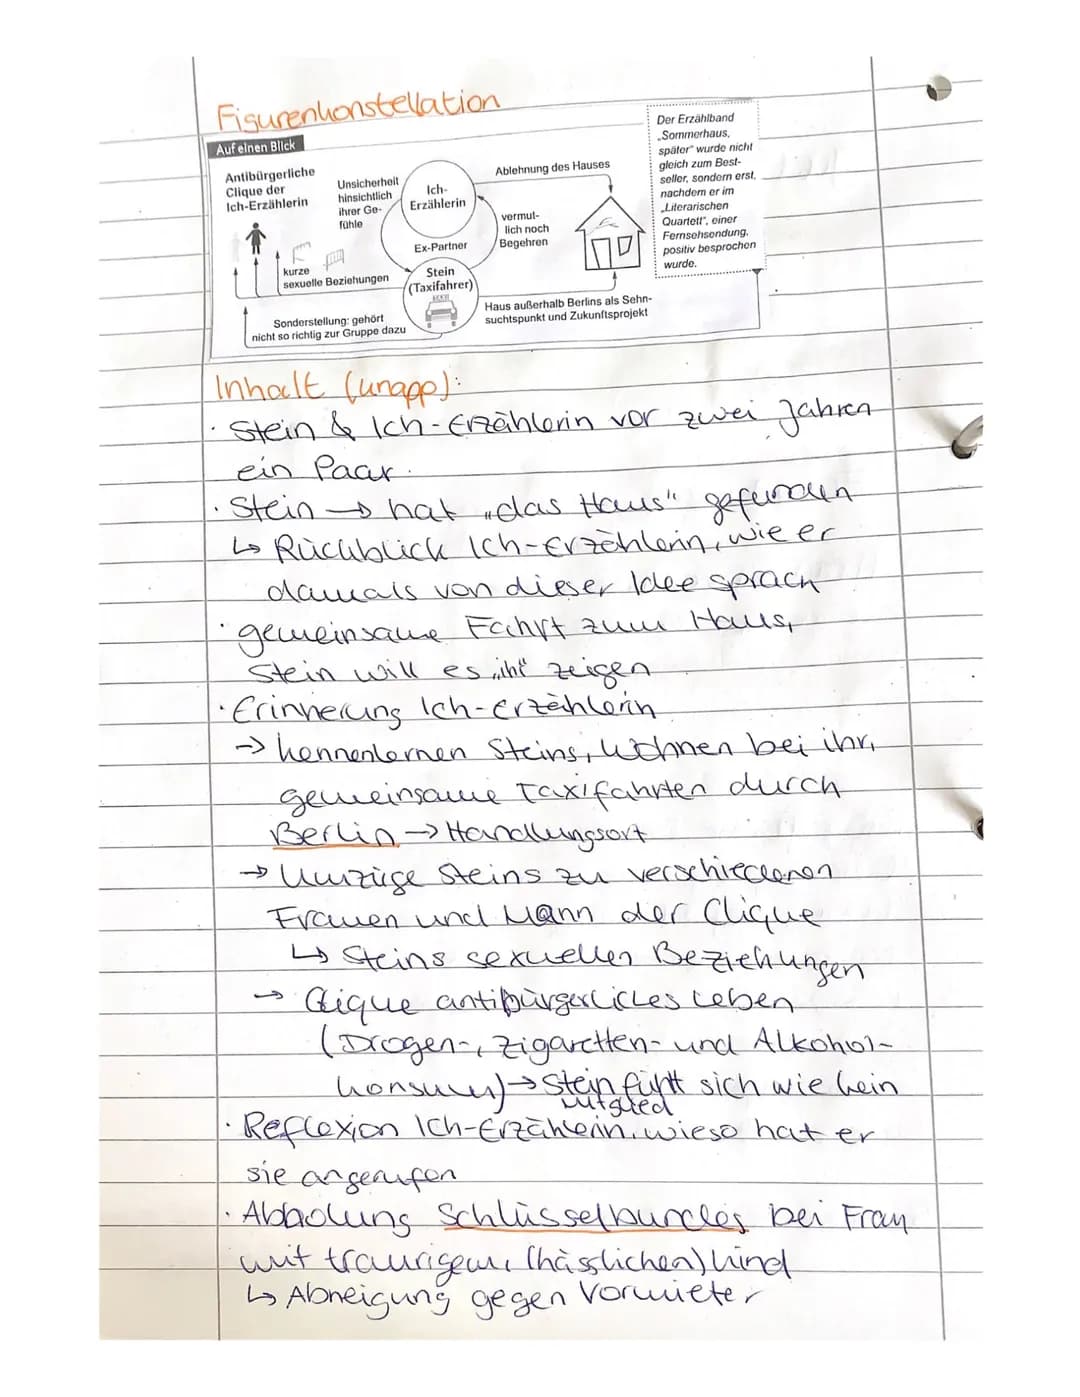 Figurenkonstellation
Auf einen Blick
Antibürgerliche
Clique der
Ich-Erzählerin
Unsicherheit
hinsichtlich
ihrer Ge-
fühle
Ich-
Erzählerin
Ablehnung des Hauses
vermut-
lich noch
Begehren
Ex-Partner
kurze
sexuelle Beziehungen
Stein
(Taxifahrer)
Sonderstellung: gehört
nicht so richtig zur Gruppe dazu
Haus außerhalb Berlins als Sehn-
suchtspunkt und Zukunftsprojekt
Der Erzählband
„Sommerhaus,
später" wurde nicht
gleich zum Best-
seller, sondern erst,
nachdem er im
„Literarischen
Quartett", einer
Fernsehsendung,
positiv besprochen
wurde.
Inhalt (knapp):
· Stein & Ich-Erzählerin vor zwei Jahren
ein Paar.
· Stein → hat „das Haus" gefunden
↳ Rückblick Ich-Erzählerin, wie er
damals von dieser Idee sprach
· gemeinsame Fahrt zum Haus,
Stein will es „ihr" zeigen
· Erinnerung Ich-Erzählerin
→ kennenlernen Steins, Wohnen bei ihr,
gemeinsame Taxifahrten durch
Berlin → Handlungsort
→ Umzüge Steins zu verschiedenen
Frauen und Mann der Clique
↳ Steins sexuellen Beziehungen
→ Clique antibürgerliches Leben
(Drogen-, Zigaretten- und Alkohol-
konsum) → Stein fühlt sich wie kein
Mitglied
· Reflexion Ich-Erzählerin, wieso hat er
sie angerufen
· Abholung Schlüsselbundes bei Frau
mit traurigem, (hässlichen) Kind
↳ Abneigung gegen Vormieter